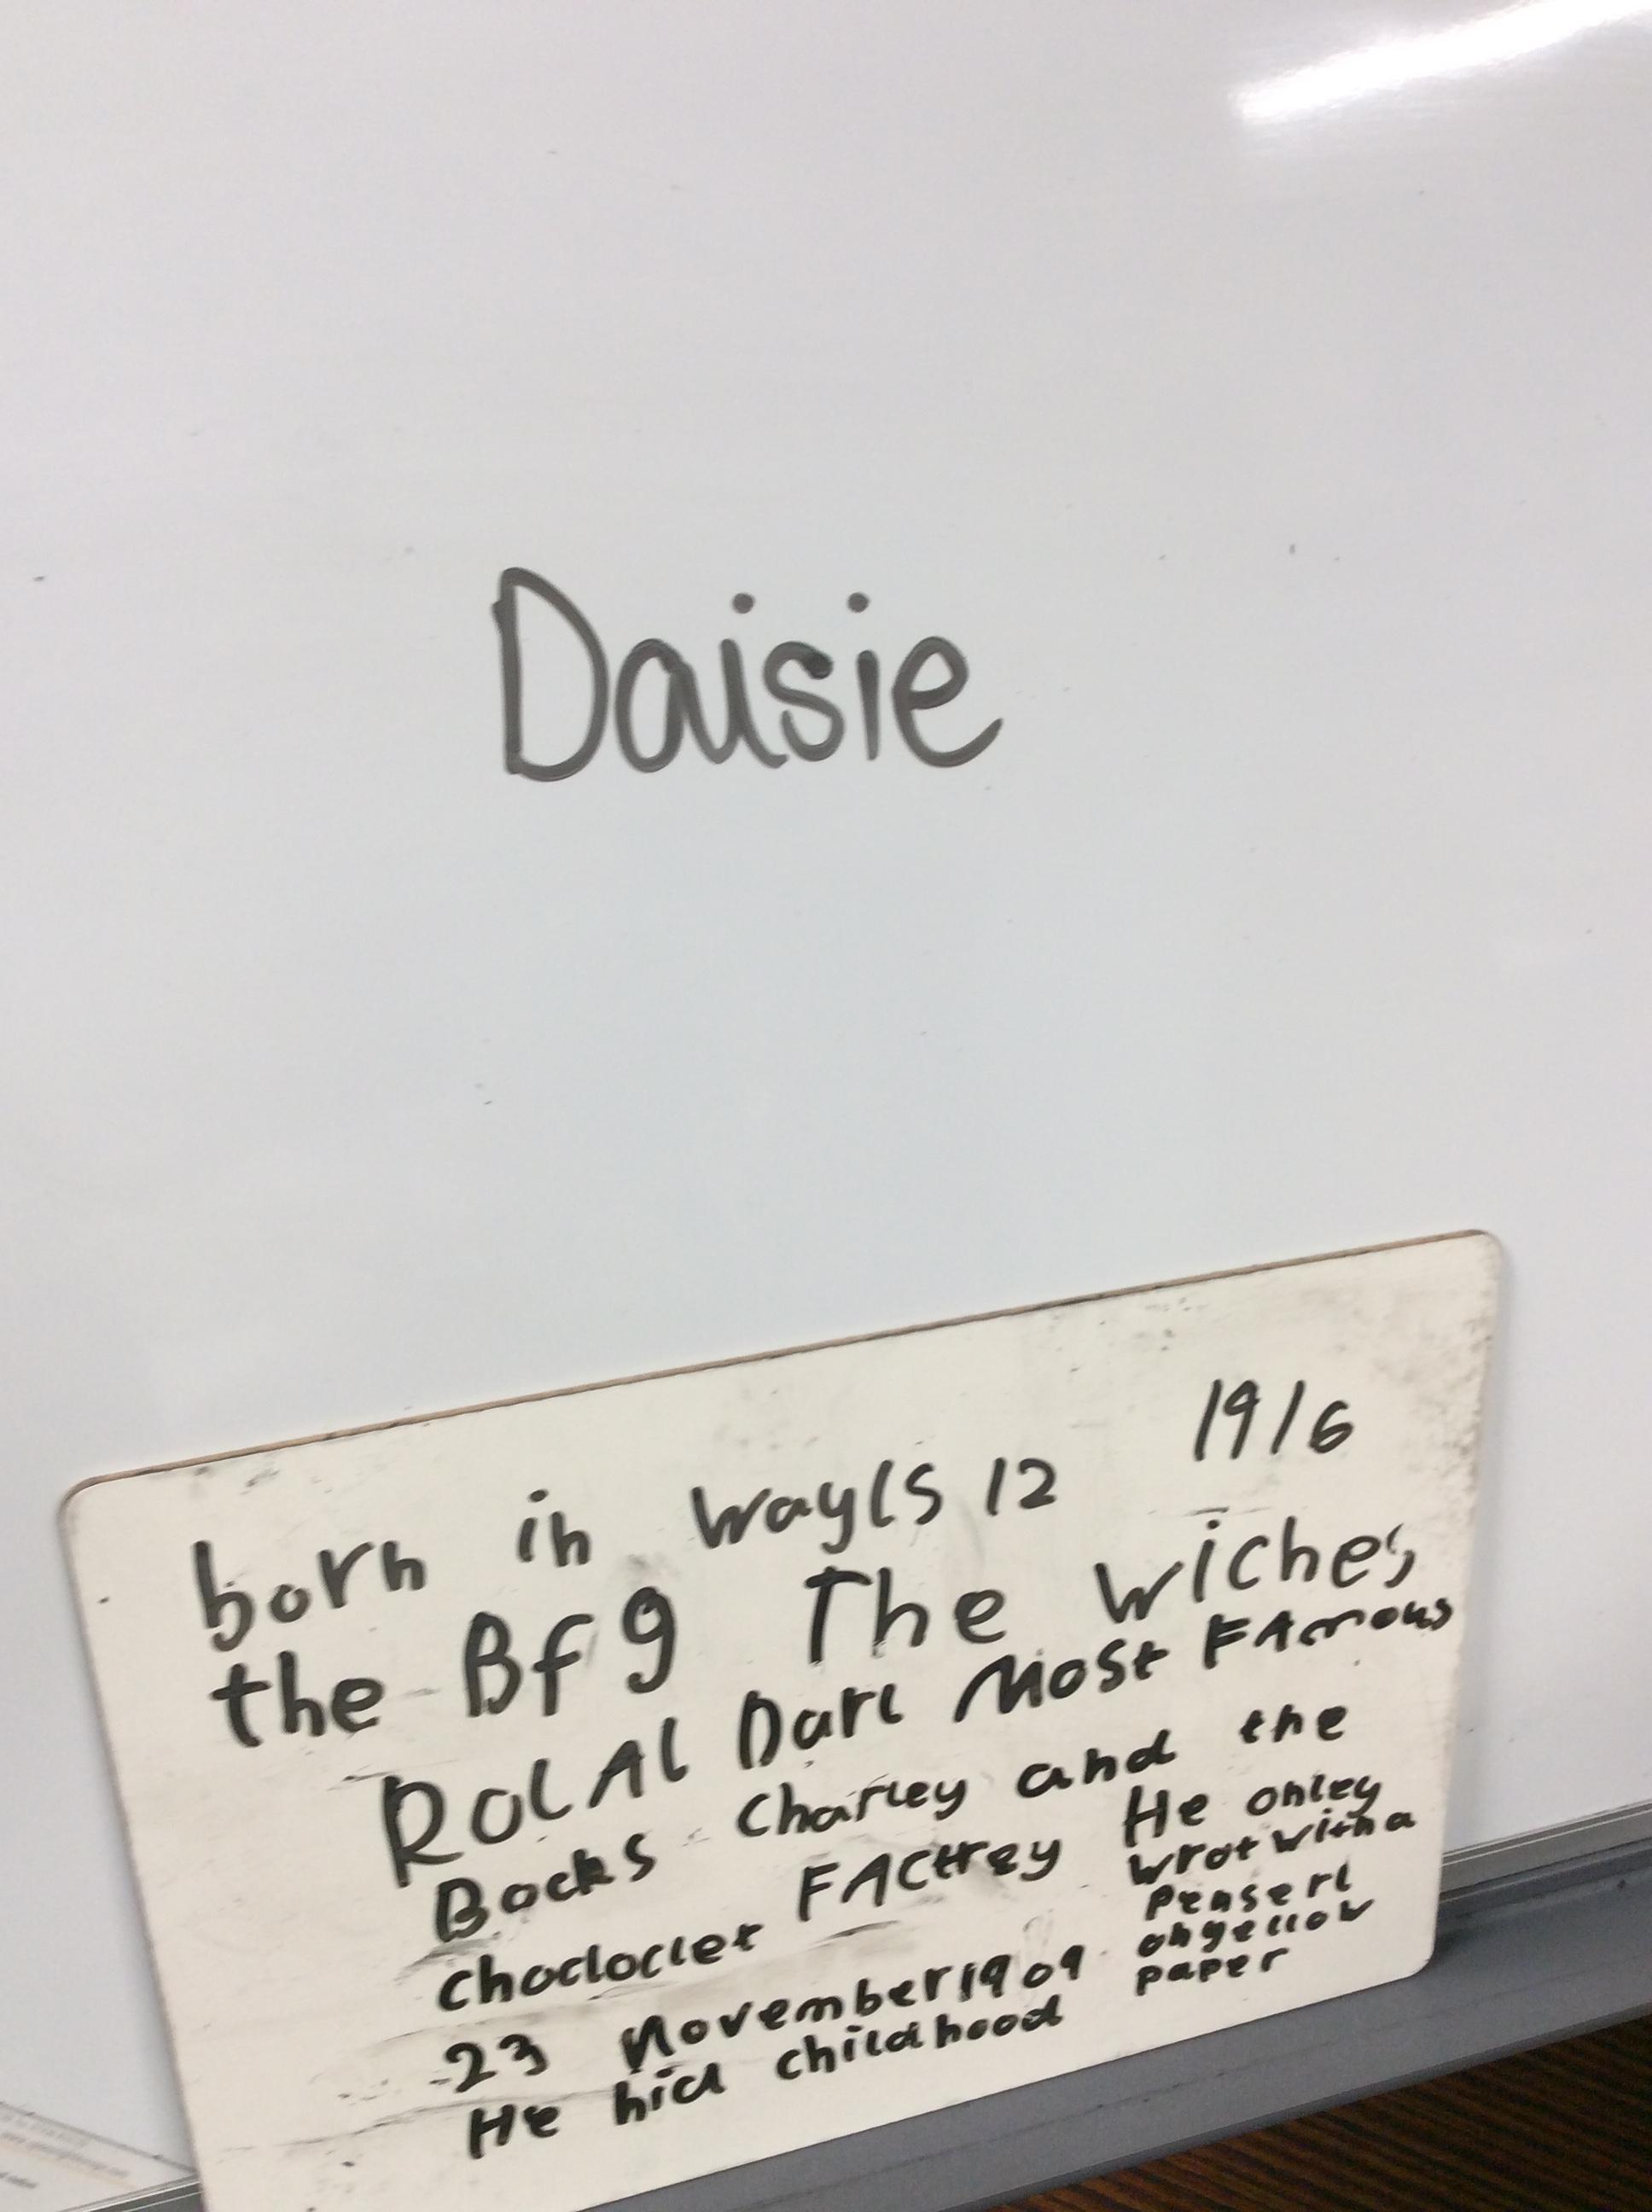 Daisie
born in wayls 12 1916
the Bfg The wiches
RolAl Darl Most FAmous
Bocks Charley and the
chocloclet FACtrey He onley
wrot with a
penserl
on yellow
paper
23 November 1909
He hid childhood